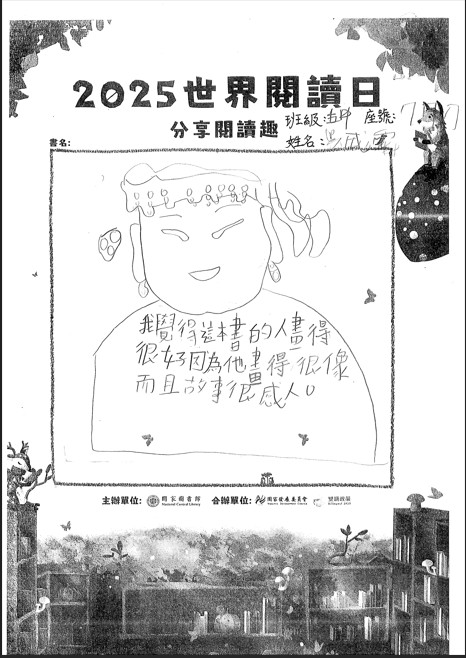 2025世界閱讀日
分享閱讀趣
班級: 座號:
姓名:
書名:
我覺得這本書的人畫得
很好因為他畫得很像
而且故事很感人。
主辦單位: 國家圖書館 合辦單位: 國家發展委員會 雙語政策
National Central Library National Development Council Bilingual 2030